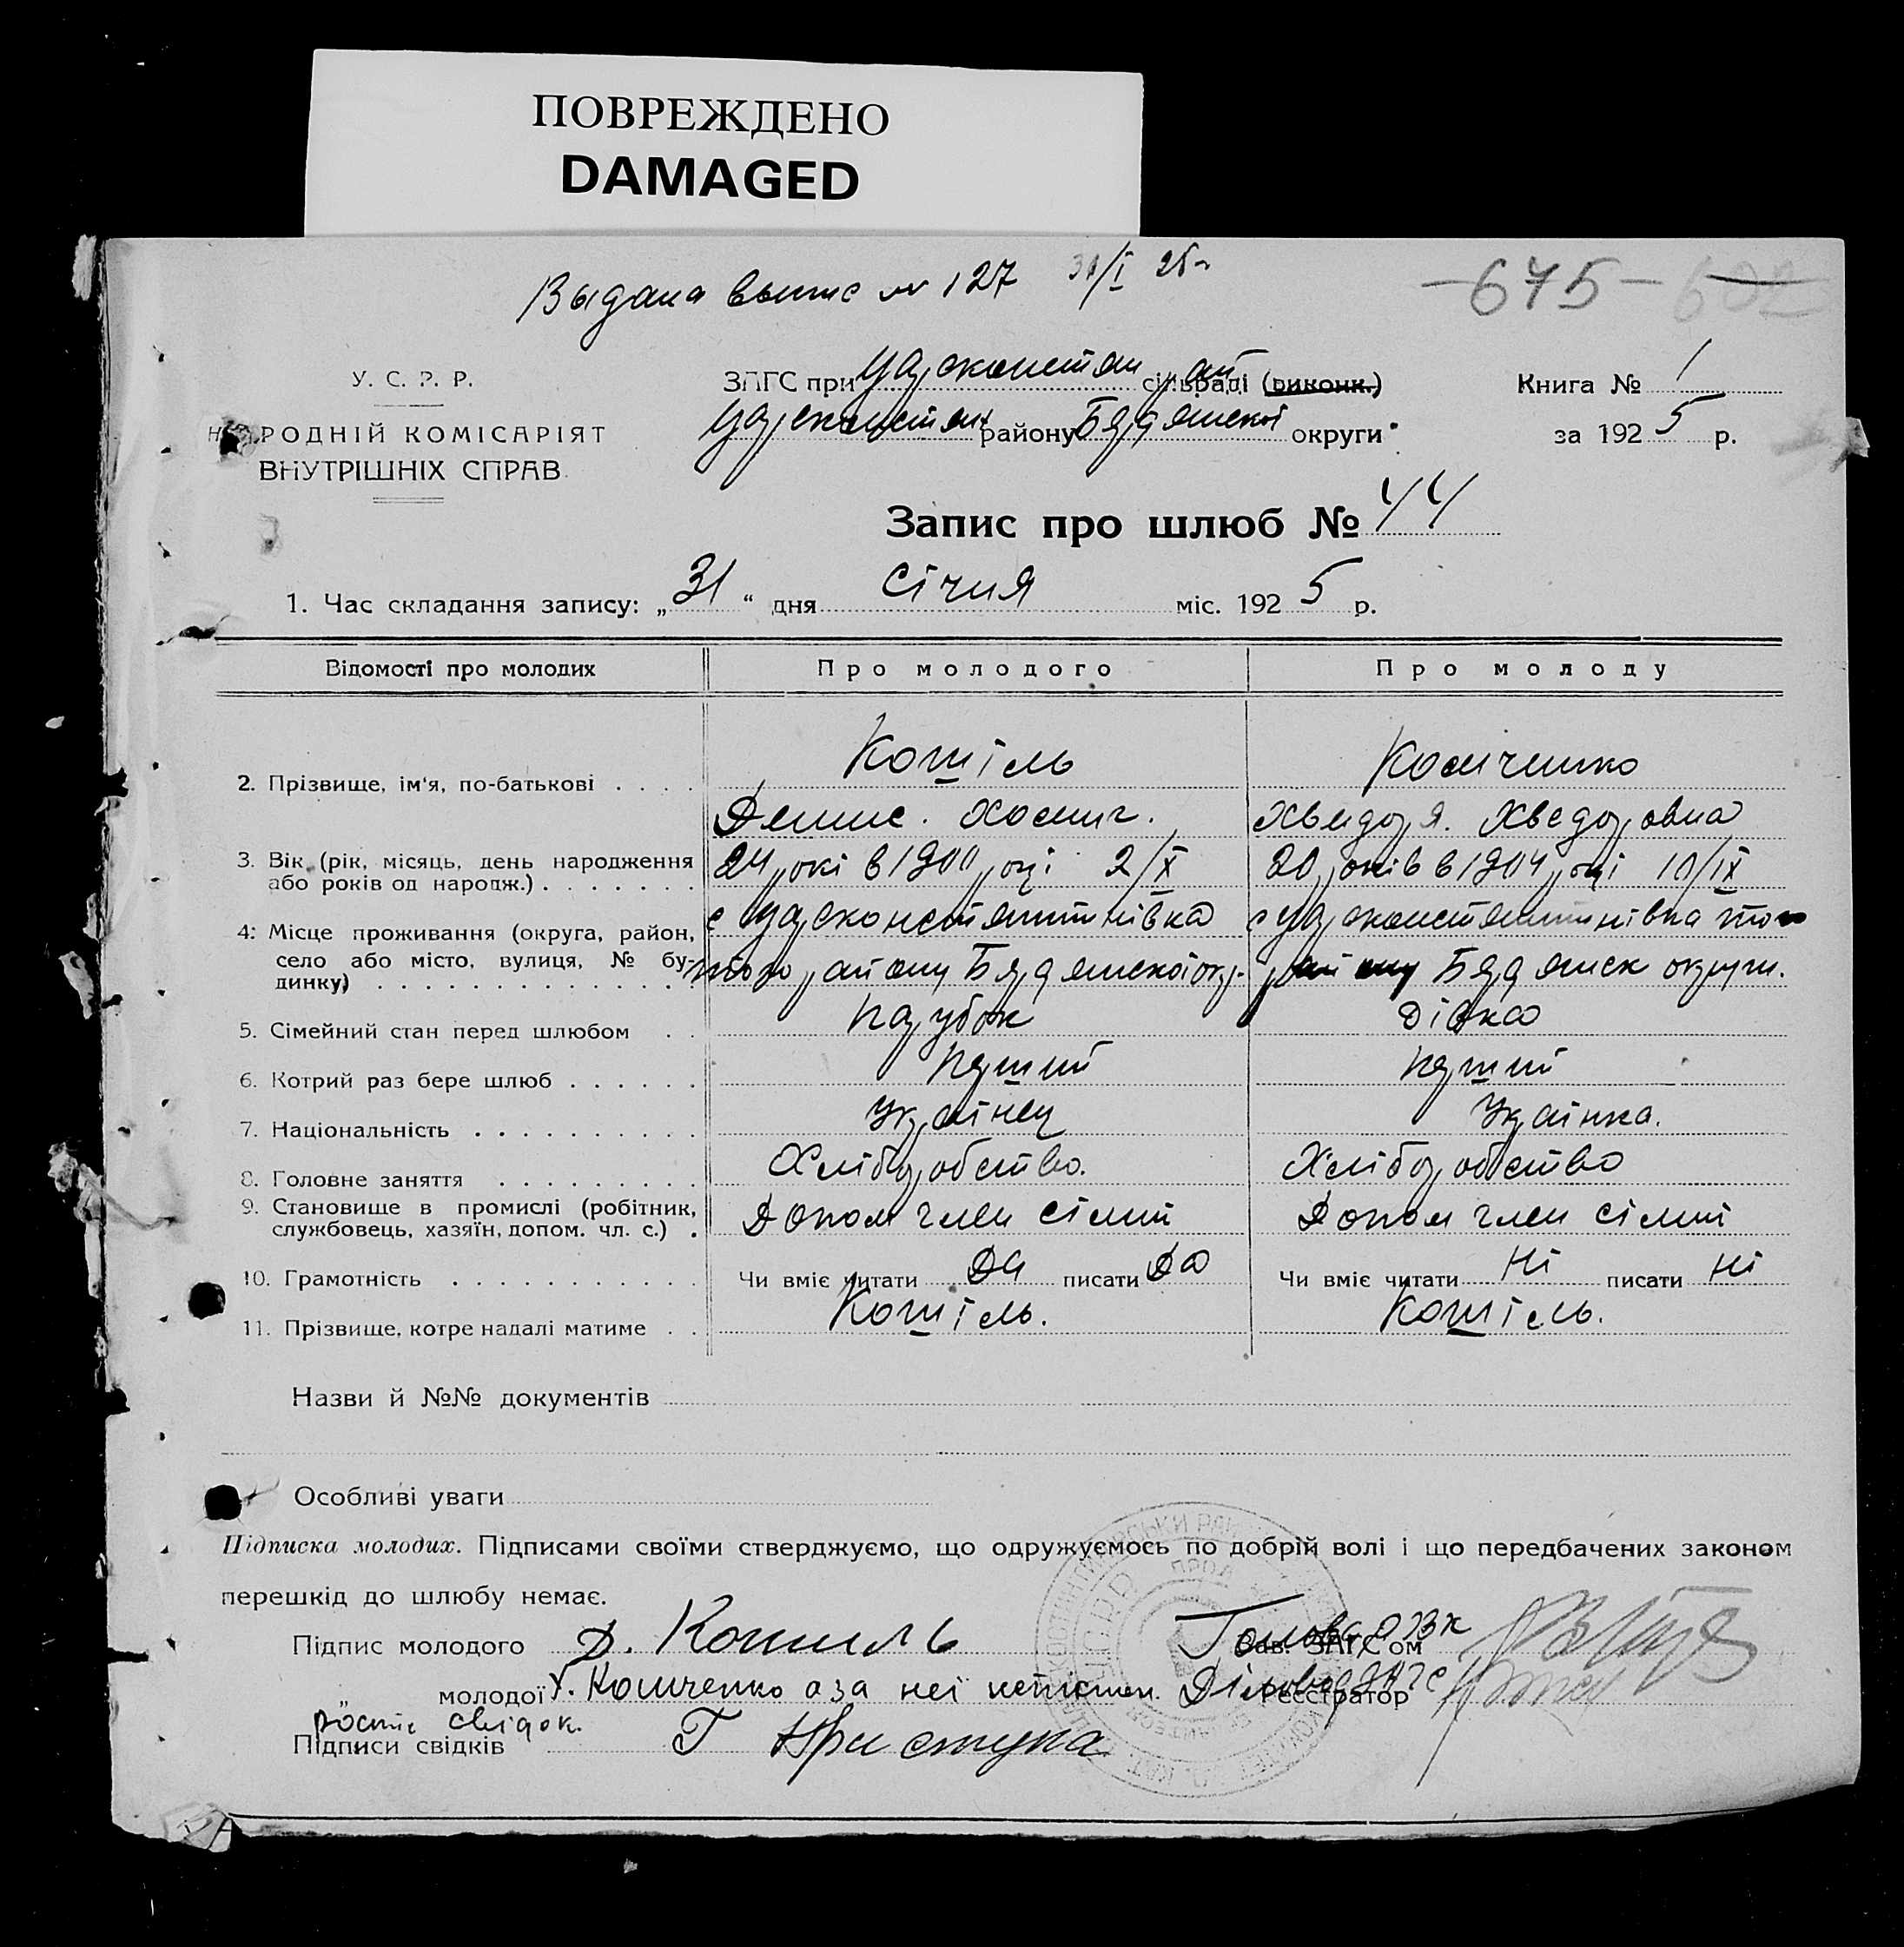 ПОВРЕЖДЕНО
DAMAGED
Выдана выпис № 127 31/I 25 г
— 675 —
У. С. Р. Р.
НАРОДНІЙ КОМІСАРІЯТ
ВНУТРІШНІХ СПРАВ
ЗАГС при Царєконстан рай сільраді (виконк.)
Царєконстан району Бердянської округи
Книга № 1
за 1925 р.
Запис про шлюб № 44
1. Час складання запису: „31“ дня Січня міс. 1925 р.
Відомості про молодих Про молодого Про молоду
2. Прізвище, ім'я, по-батькові . . . . Кошіль
Денис. Хомич. Хведоря. Хведоровна
3. Вік (рік, місяць, день народження або років од народж.) 24 рокі в 1900 році 2/X 20 років в 1904 році 10/IX
4. Місце проживання (округа, район, село або місто, вулиця, № будинку) с Царєконстянтинівка того району Бердянської окр. с Царєконстянтинівка того району Бердянск округи.
5. Сімейний стан перед шлюбом . . Парубок Дівка
6. Котрий раз бере шлюб . . . . . . Перший Перший
7. Національність . . . . . . . . . . Українец Українка.
8. Головне заняття . . . . . . . . . Хліборобство. Хліборобство
9. Становище в промислі (робітник, службовець, хазяїн, допом. чл. с.) . Допом член сімії Допом член сімії
10. Грамотність . . . . . . . . . . . Чи вміє читати Да писати Да Чи вміє читати Ні писати Ні
11. Прізвище, котре надалі матиме . . Кошіль. Кошіль.
Назви й №№ документів
Особливі уваги
Підписка молодих. Підписами своїми стверджуємо, що одружуємось по добрій волі і що передбачених законом
перешкід до шлюбу немає.
Підпис молодого Д. Кошиль Зав. ЗАГС'ом Голова РВК
„ молодої Х. а за неї неписмен. Реєстратор Діловод ЗАГС
роспис свідок.
Підписи свідків Г